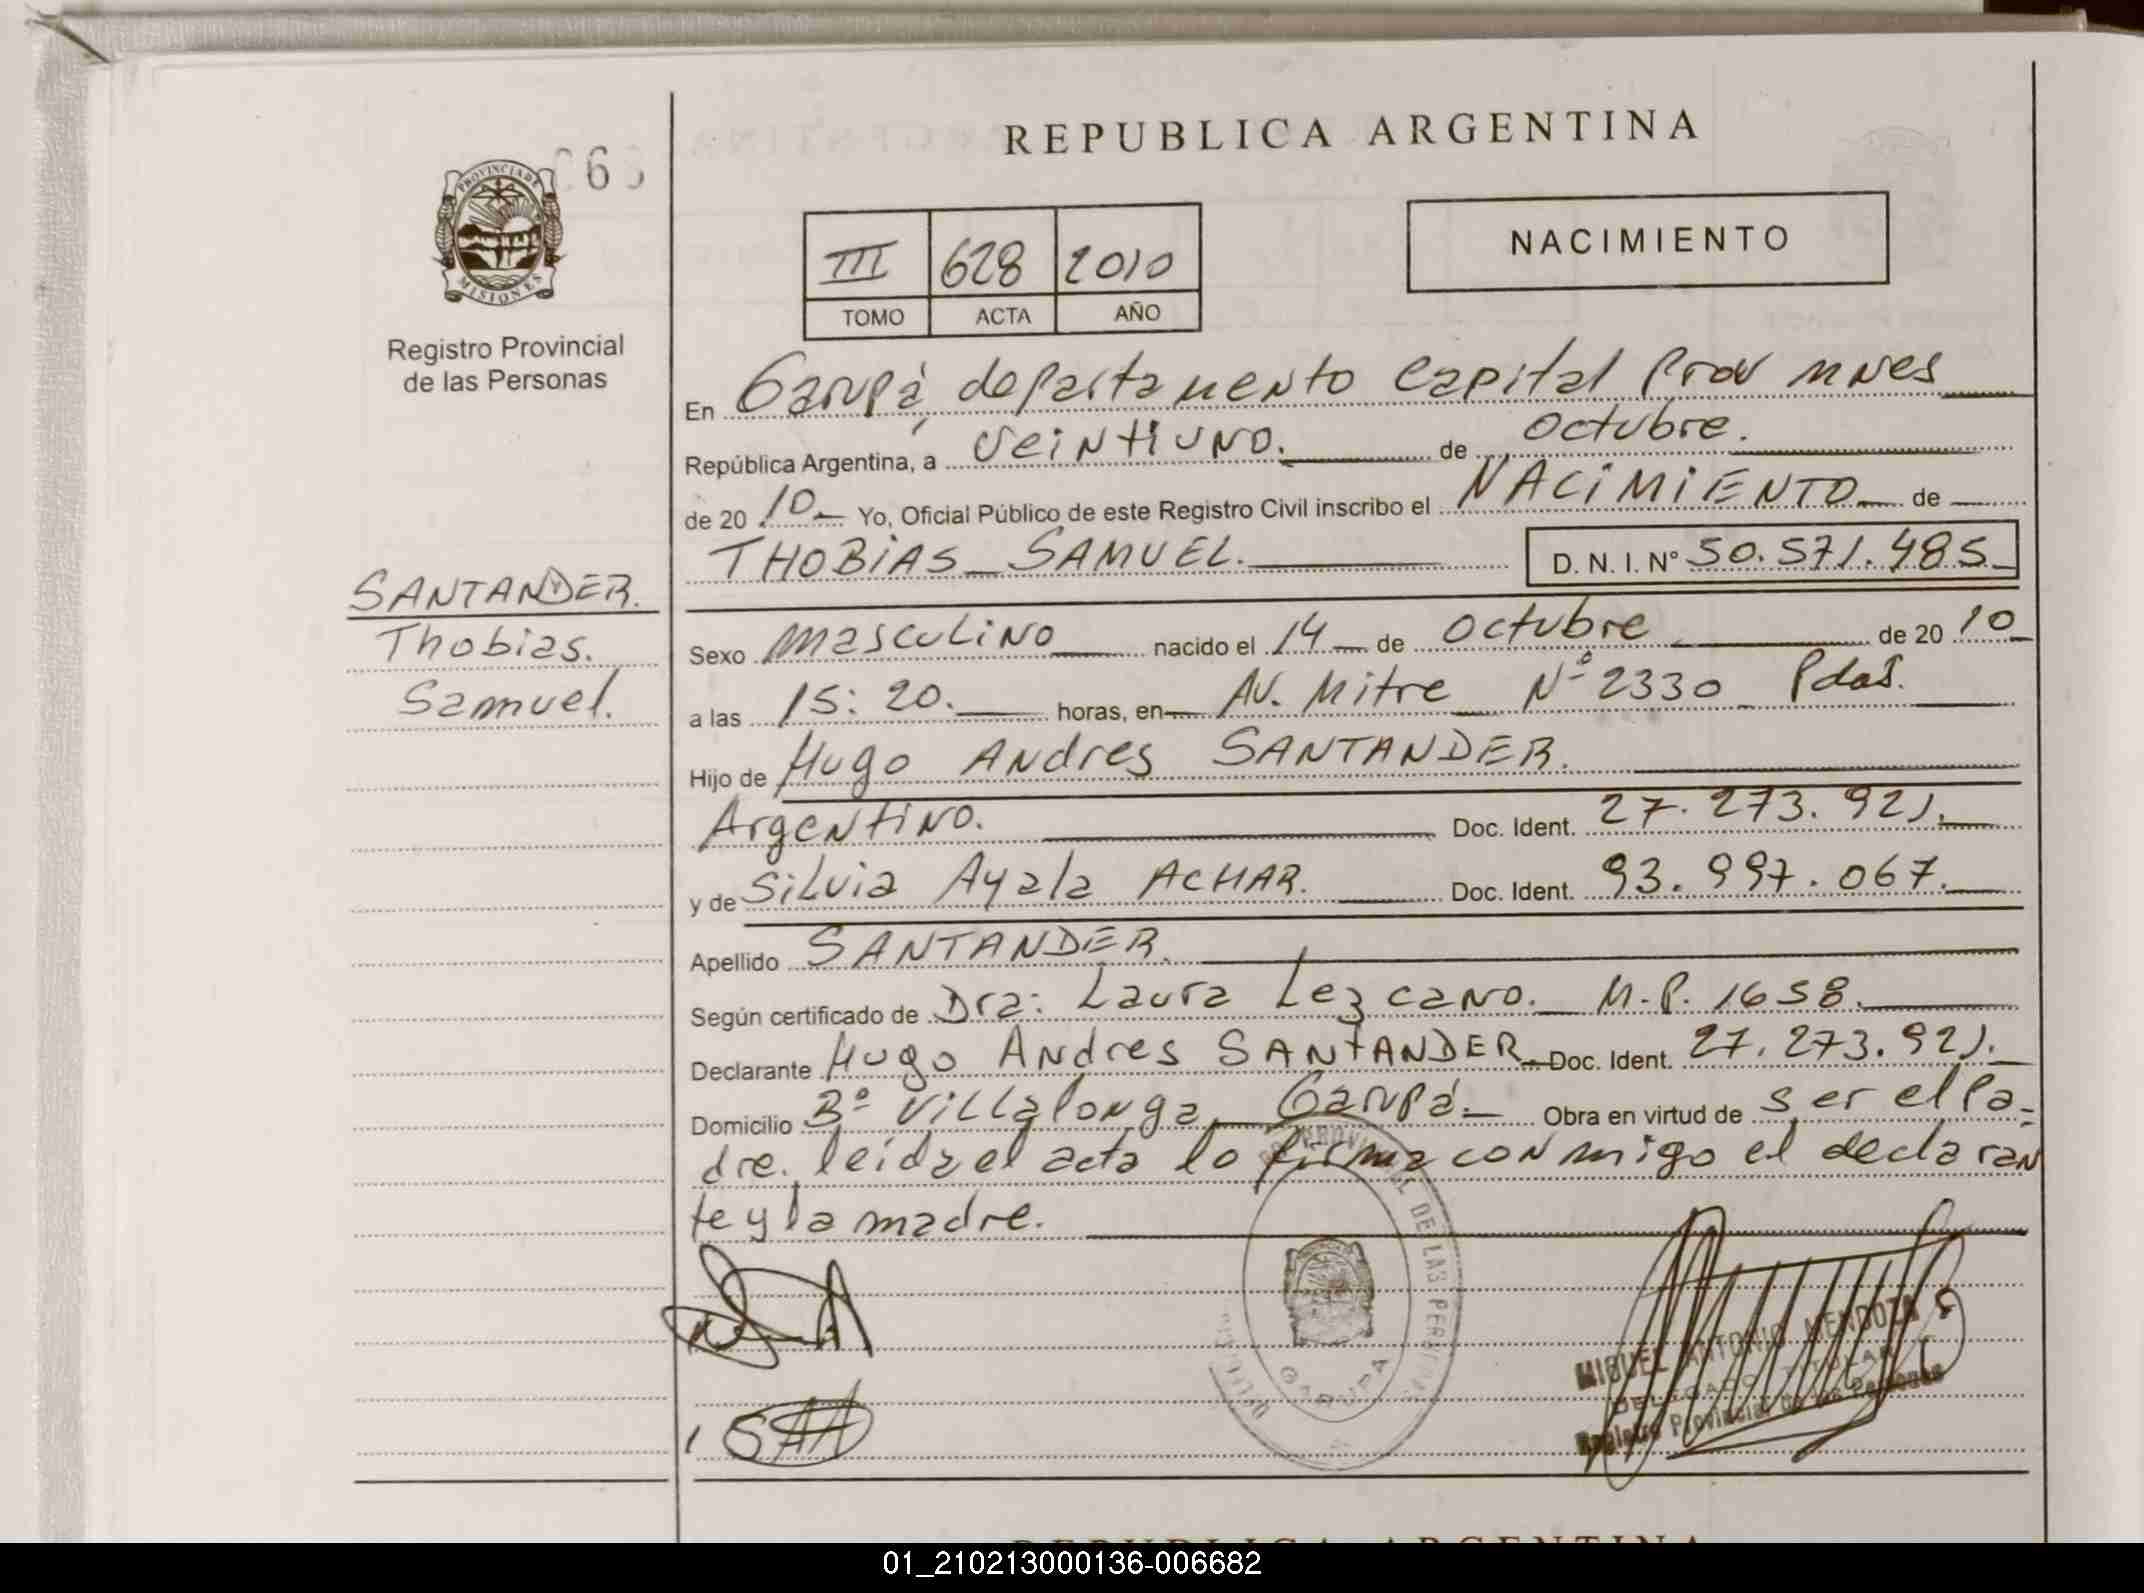 REPUBLICA ARGENTINA
PROVINCIA DE
MISIONES
Registro Provincial
de las Personas
III 628 2010
TOMO ACTA AÑO
NACIMIENTO
En Garupá, departamento Capital Prov Mnes
República Argentina, a veintiuno. de octubre.
de 2010 Yo, Oficial Público de este Registro Civil inscribo el NACIMIENTO de
THOBIAS SAMUEL. D. N. I. Nº 50.571.485
SANTANDER.
Thobias.
Samuel.
Sexo masculino nacido el 14 de octubre de 2010
a las 15:20. horas, en Av. Mitre Nº 2330 Pdas.
Hijo de Hugo Andres SANTANDER.
Argentino. Doc. Ident. 27.273.921.
y de Silvia Ayala ACHAR. Doc. Ident. 93.997.067.
Apellido SANTANDER.
Según certificado de Dra: Laura Lezcano. M.P. 1658.
Declarante Hugo Andres SANTANDER Doc. Ident. 27.273.921.
Domicilio Bº Villalonga, Garupá. Obra en virtud de ser el Pa-
dre. leida el acta lo firma conmigo el declaran
te y la madre.
DE LAS PERSONAS
GARUPA
MIGUEL ANTONIO MENDOZA
DELEGADO TITULAR
Registro Provincial de las Personas
REPUBLICA ARGENTINA
01_210213000136-006682